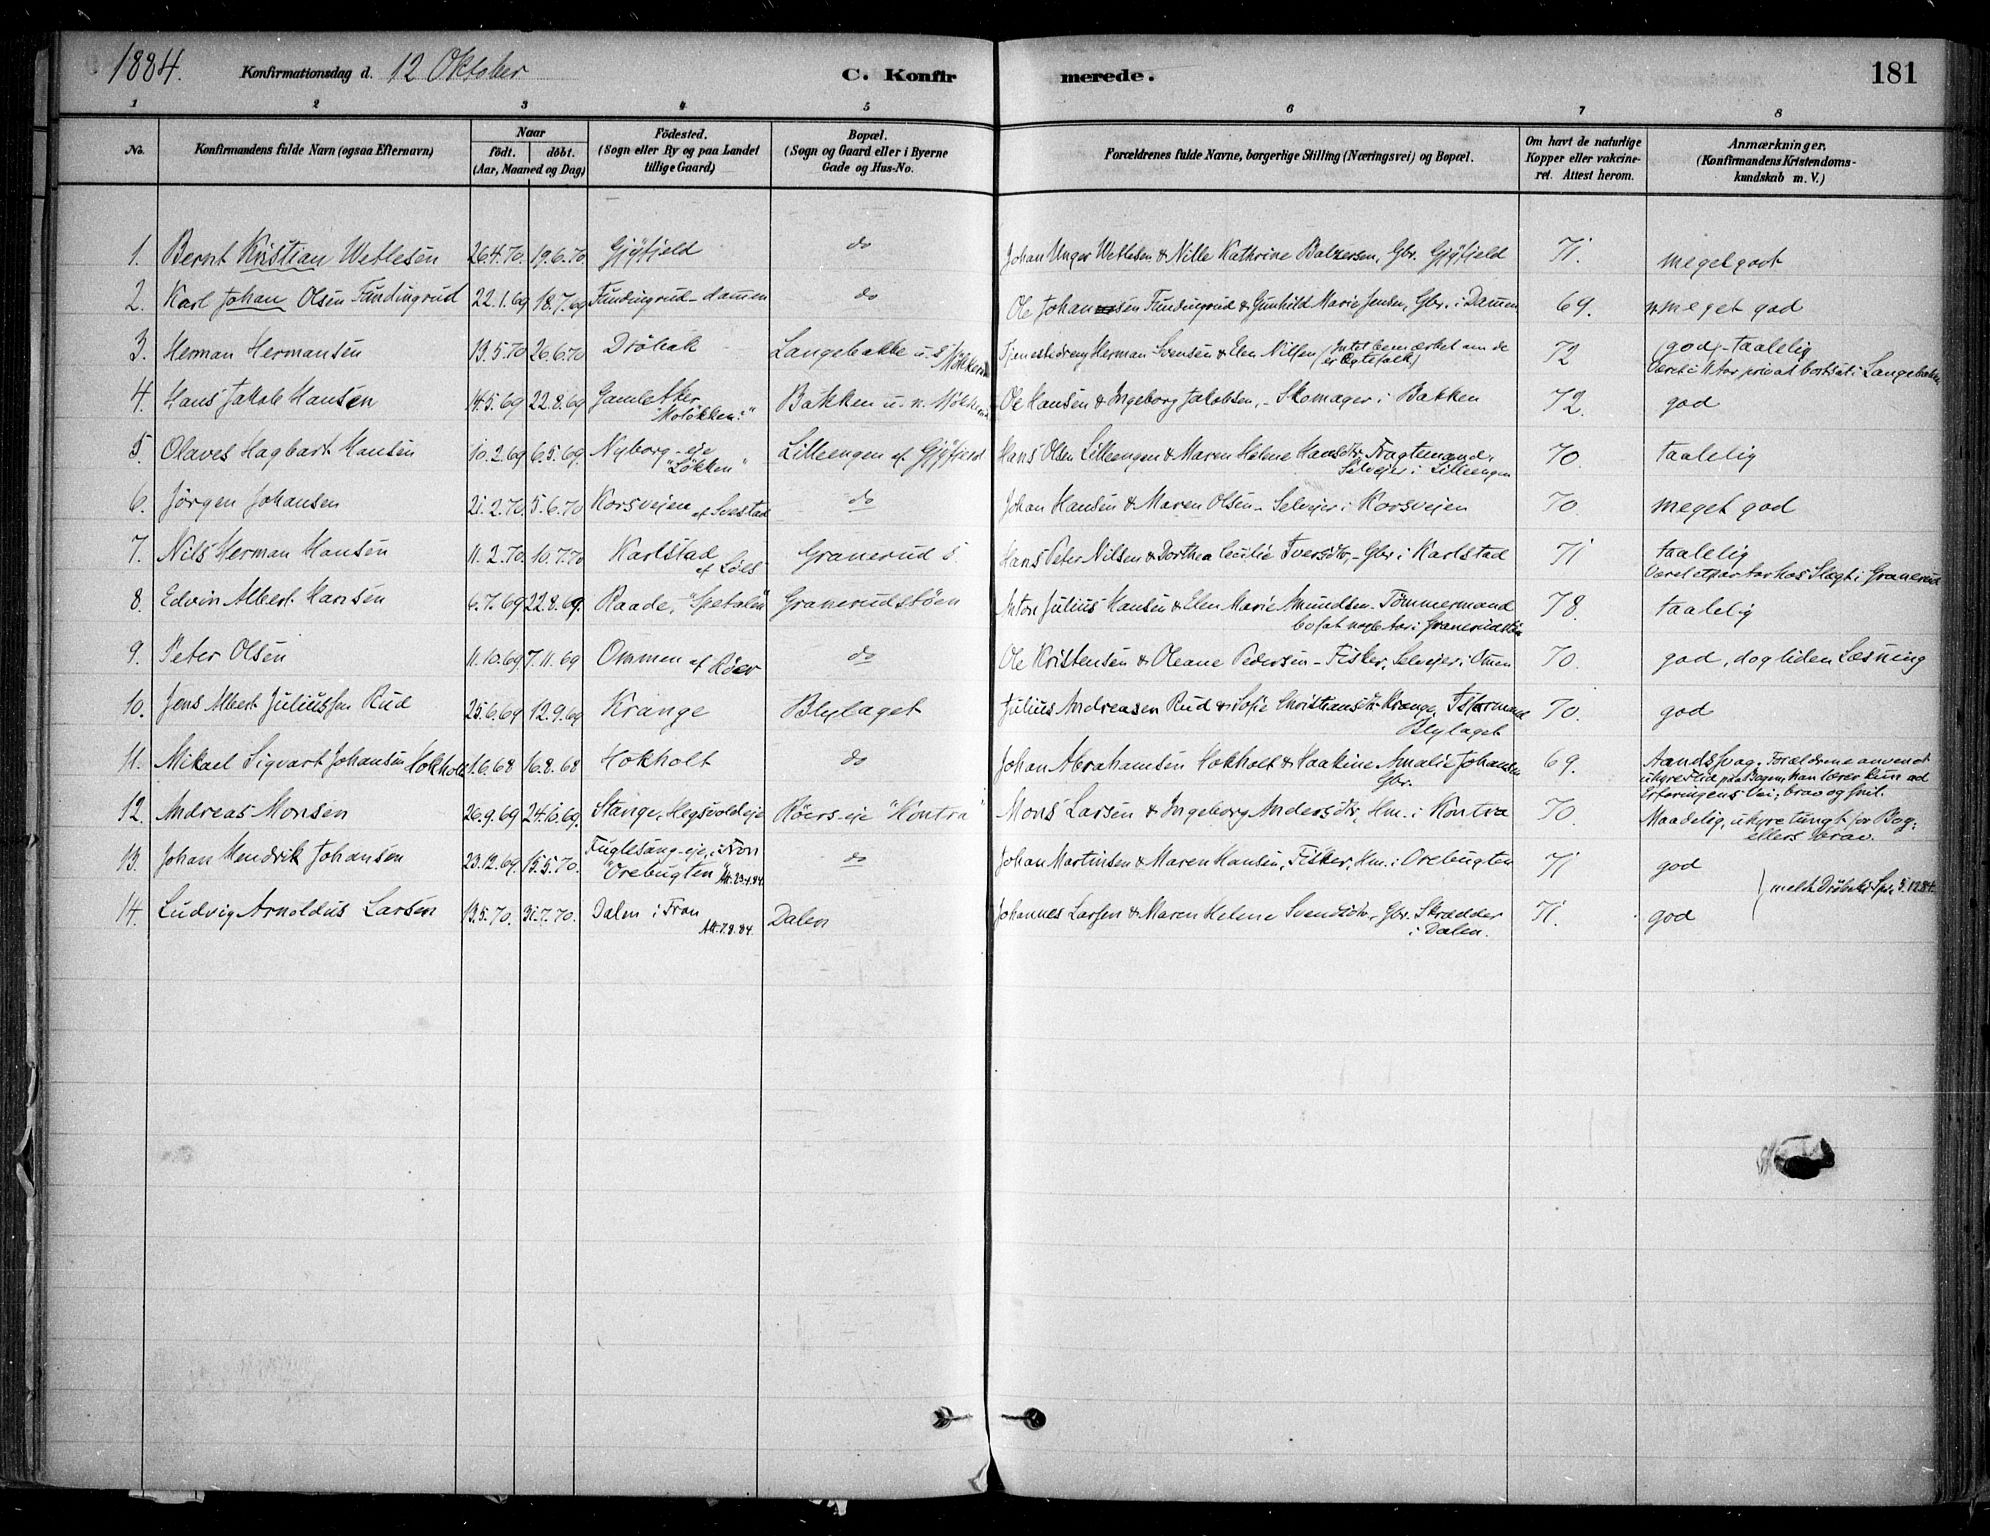 1884. Konfirmationsdag d. 12 Oktober C. Konfirmerede. 181
1 2 3 4 5 6 7 8
No. Konfirmandens fulde Navn (ogsaa Efternavn) Naar födt. döbt. (Aar, Maaned og Dag) Födested. (Sogn eller By og paa Landet tillige Gaard) Bopæl. (Sogn og Gaard eller i Byerne Gade og Hus-No. Forældrenes fulde Navne, borgerlige Stilling (Næringsvei) og Bopæl. Om havt de naturlige Kopper eller vakcineret. Attest herom. Anmærkninger, (Konfirmandens Kristendomskundskab m. V.)
1. Bernt Kristian Wetlesen 26.4.70. 19.6.70 Gjöfjeld do Johan Unger Wetlesen & Nille Kathrine Balzersen, Gbr. Gjöfjeld 71. meget godt
2. Karl Johan Olsen Fundingrud 22.1.69 18.7.69 Fundingrud-dammen do Ole Johansen Fundingrud & Gunhild Marie Jensen, Gbr. i Dammen 69. meget god
3. Herman Hermansen 13.5.70 26.6.70 Dröbak Langebakke u. s. Tjenestedreng Herman Svensen & Elen Nilsen (Intet bemærket om de er Ægtefolk) 72 god - taalelig
Været i 11 Aar privat bortsat i Langebakke
4. Hans Jakob Hansen 14.5.69 22.8.69 Gamle Aker Bakken u. n. Ole Hansen & Ingeborg Jakobsen, - Skomager i Bakken 72. god
5. Olaves Hagbart Hansen 10.2.69 6.5.69. Nyborg-eje "Lökken" Lilleengen af Gjöfjeld Hans Olsen Lilleengen & Maren Helene Hansdtr. Fragtemand, Selvejer i Lilleengen 70. taalelig
6. Jörgen Johansen 21.2.70. 5.6.70 Korsvejen af Svestad do Johan Hansen & Maren Olsen - Selvejer i Korsvejen 70. meget god
7. Nils Herman Hansen 11.2.70. 10.7.70 Karlstad af Löes Granerud s. Hans Peter Nilsen & Dorthea Cecilie Iversdtr, - Gbr. i Karlstad 71 taalelig
Været et par Aar hos Slegt i Granerud
8. Edvin Albert Hansen 6.7.69 22.8.69. Raade, "Spetalen" Granerudstöen Anton Julius Hansen & Elen Marie Amundsen - Tömmermand bosat nogle Aar i Granerudstöen 78. taalelig
9. Peter Olsen 11.10.69 7.11.69 Ommen af Röer do Ole Kristensen & Oleane Pedersen - Fisker, Selvejer i Omen 70. god, dog liden Læsning
10. Jens Albert Juliussen Rud 25.6.69 12.9.69 Krange Blylaget Julius Andreasen Rud & Sofie Christiansdtr Krange, Blylaget 70. god
11. Mikael Sigvart Johansen Hokholt 1.6.68 16.8.68 Hokholt do Johan Abrahamsen Hokholt & Haakine Amalie Johansen Gbr. 69. Aandssvag. Forældrene anvendt uhyre tid paa Bogen, han lærer kun ad Erfaringens Vei, brav og snil.
12. Andreas Monsen 26.9.69 24.10.69. Stange, Hegsvoldeje Röers-eje "Kontra" Mons Larsen & Ingeborg Andersdtr, Hm. i Kontra 70. Maadelig, uhyre tungt for Bog, ellers brav.
13. Johan Hendrik Johansen 23.12.69. 15.5.70. Fuglesang-eje, i Fron "Orebugten" Att. 23.4.84. do Johan Martinsen & Maren Hansen, Fisker, Hm. i Orebugten 71 god
} meldt Dröbaks Spr. 5.12.84.
14. Ludvig Arnoldus Larsen 13.5.70. 31.7.70. Dalen i Fron Att. 7.8.84. Dalen Johannes Larsen & Maren Helene Svendsdtr, Gbr. Skrædder i Dalen. 71. god